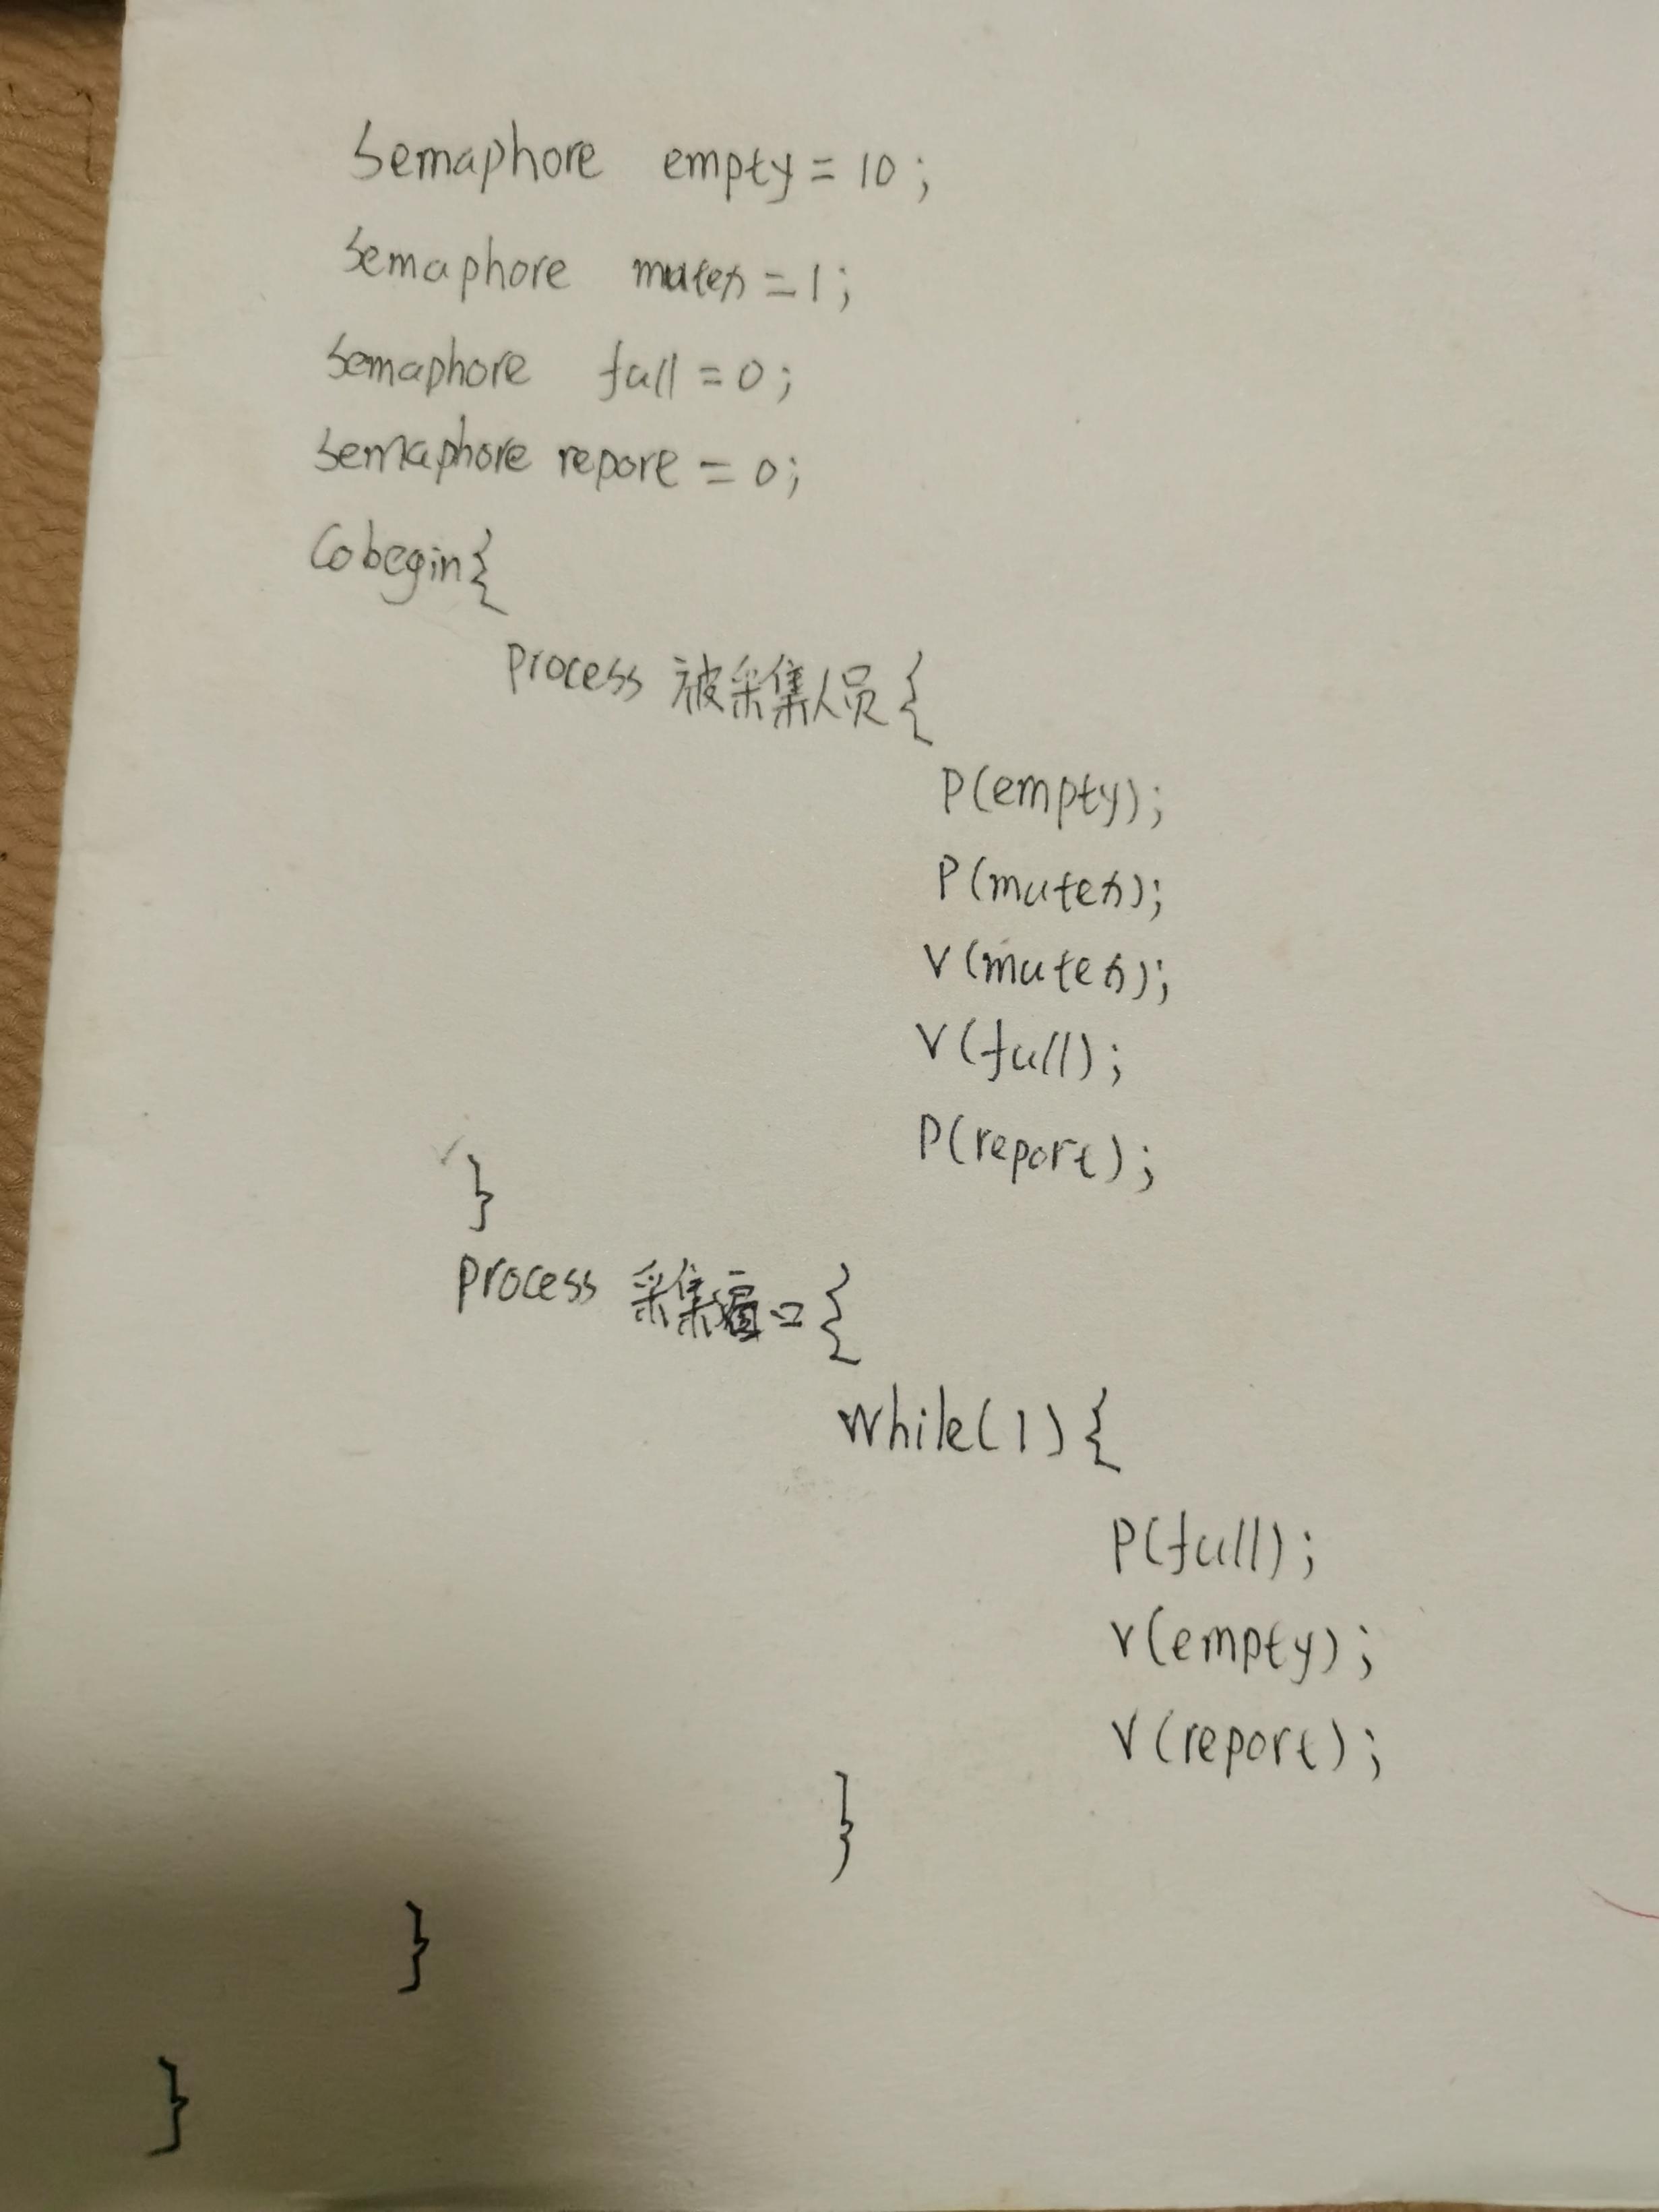 Semaphore empty = 10;
Semaphore mutex = 1;
Semaphore full = 0;
Semaphore report = 0;
Cobegin{
process 被采集人员{
P(empty);
P(mutex);
V(mutex);
V(full);
P(report);
}
process 采集窗口{
while(1){
P(full);
V(empty);
V(report);
}
}
}